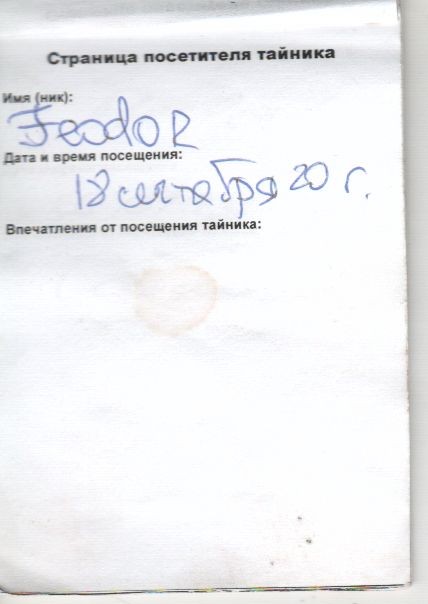 Страница посетителя тайника
Имя (ник):
Feodor
Дата и время посещения:
18 сентября 20 г.
Впечатления от посещения тайника: